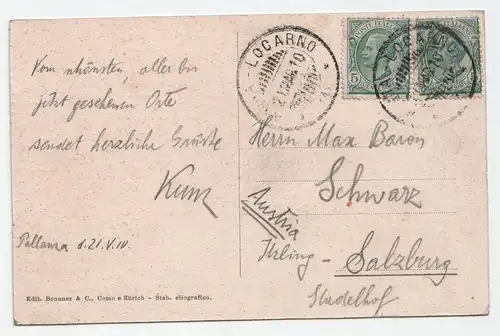 Vom schönsten, aller bis
jetzt gesehenen Orte
sendet herzliche Grüsse
Kunz
Pallanza d. 21. V. 10.
Edit. Brunner & C., Como e Zürich – Stab. eliografico.
LOCARNO
10
5
Herrn Max Baron
Schwarz
Austria
Salzburg